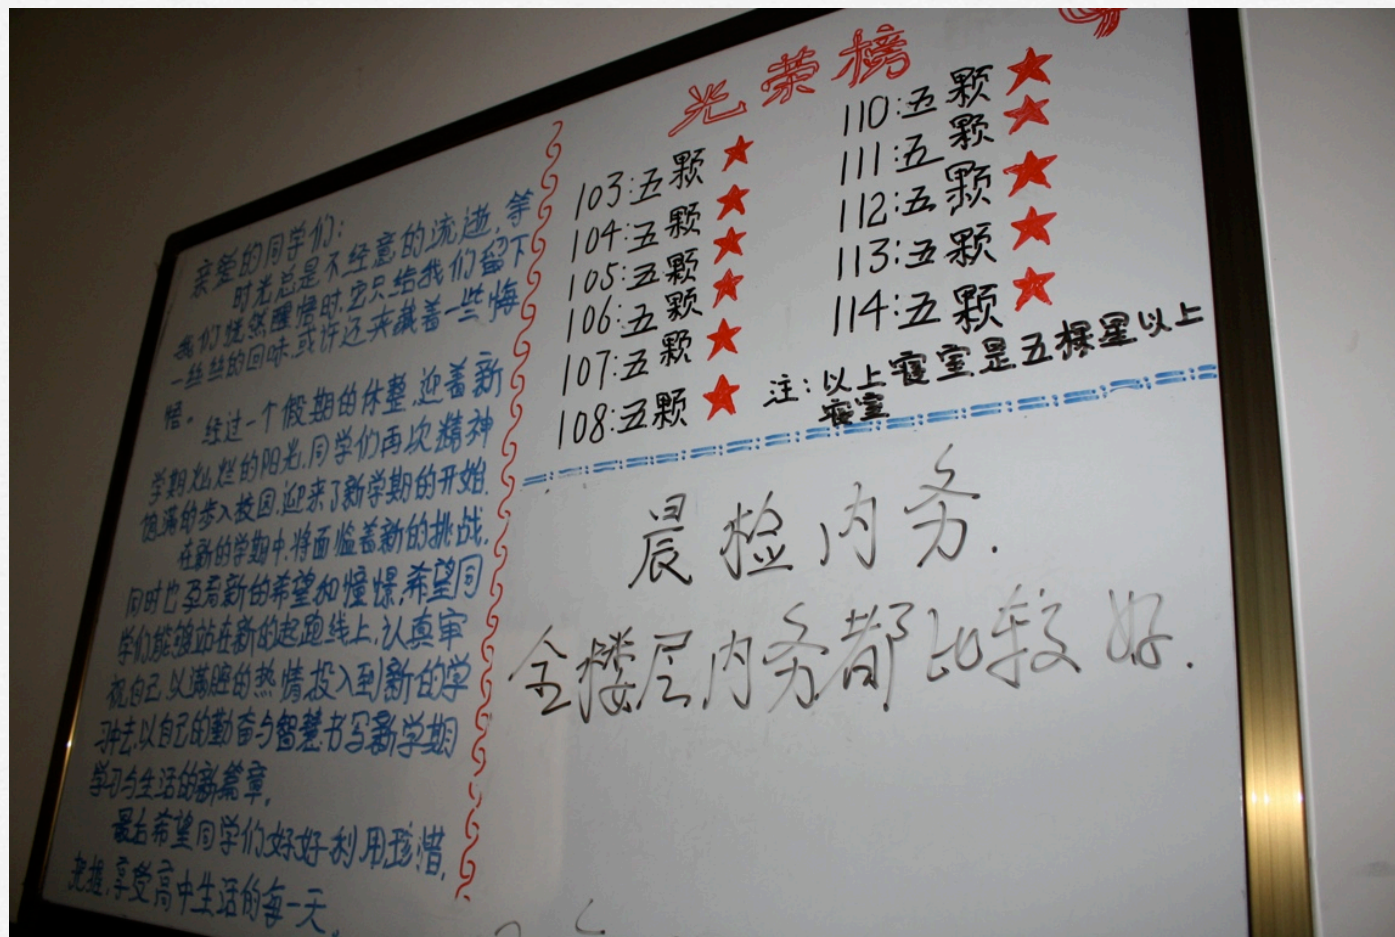 亲爱的同学们：
时光总是不经意的流逝，等
我们恍然醒悟时，它只给我们留下
一丝丝的回味，或许还夹藏着一些悔
悟。
经过一个假期的休整，迎着新
学期灿烂的阳光，同学们再次精神
饱满的步入校园，迎来了新学期的开始。
在新的学期中，将面临着新的挑战，
同时也孕育新的希望和憧憬，希望同
学们能够站在新的起跑线上，认真审
视自己以满腔的热情投入到新的学
习中去，以自己的勤奋与智慧书写新学期
学习与生活的新篇章。
最后希望同学们好好利用，珍惜，
把握，享受高中生活的每一天。
光荣榜
103:五颗★
104:五颗★
105:五颗★
106:五颗★
107:五颗★
108:五颗★
110:五颗★
111:五颗★
112:五颗★
113:五颗★
114:五颗★
注：以上寝室是五棵星以上
寝室
晨检内务.
全楼层内务都比较好.